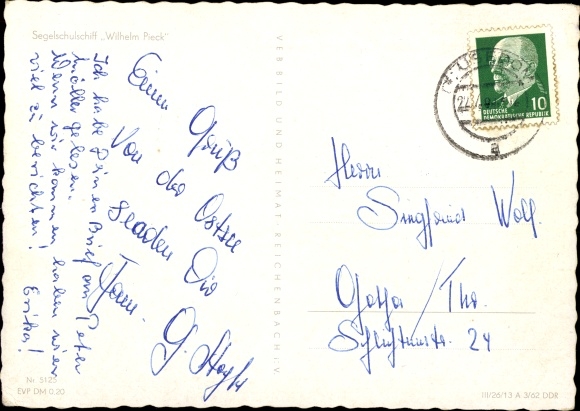 Segelschulschiff „Wilhelm Pieck"
Einen Gruß
Von der Ostsee
senden Dir
Fam.
G.
Ich habe Deinen Brief an Peter
Müller gelesen.
Wenn wir kommen haben wir
viel zu berichten!
Erika!
VERBILD UND HEIMAT REICHENBACH I. V.
10
DEUTSCHE
DEMOKRATISCHE REPUBLIK
a
Herrn
Siegfried Wolf.
Gotha / Thü.
24
Nr 5125
EVP DM 0,20
III/26/13 A 3/62 DDR